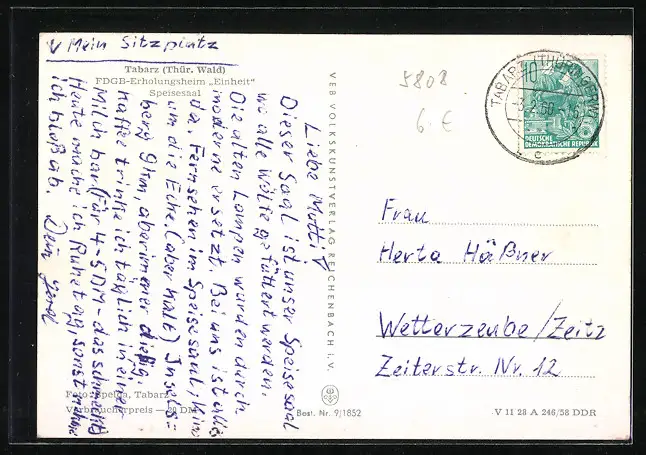 V Mein Sitzplatz
Tabarz (Thür. Wald)
FDGB-Erholungsheim „Einheit"
Speisesaal
Liebe Mutti!
Dieser Saal ist unser Speisesaal
wo alle Wölfe gefüttert werden.
Die alten Lampen wurden durch
moderne ersetzt. Bei uns ist alles
da. Fernsehen im Speisesaal, Kino
um die Ecke. (aber kalt) Insels=
berg 9km, aber immer diesig
Kaffee trinke ich täglich in einer
Milchbar (für 4-5DM - das schmeckt)
Heute mache ich Ruhetag, sonst
ich bloß ab. Dein
Foto: Speiga, Tabarz
Verbraucherpreis — 20 DM
VEB VOLKSKUNSTVERLAG REICHENBACH i. V.
Best. Nr. 9/1852
5808
6 €
TABARZ (THÜR WALD)
10
DEUTSCHE
DEMOKRATISCHE REPUBLIK
c
Frau
Herta Häßner
Wetterzeube/Zeitz
Zeiterstr. Nr. 12
V 11 28 A 246/58 DDR